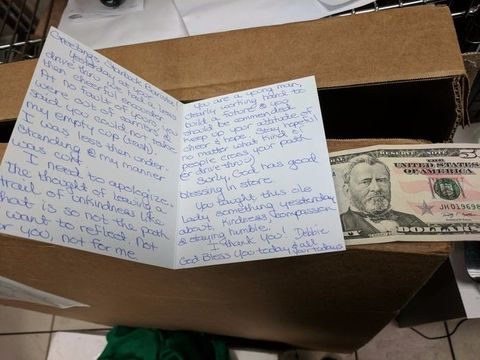 Greetings Starbuck Barista
Yesterday in your
drive thru, we had a less
than cheerful encounter.
At no fault of yours, you
were out of carriers & you
said you could not take
my empty cup (trash).
I was less than under-
standing & my manner
was curt.
I need to apologize.
The thought of leaving a
trail of unkindness like
that is so not the path
I want to reflect. Not
for you, not for me.
You are a young man,
clearly working hard to
build a future & you
should be commended.
Keep up your attitude of
cheer & hope. Stay joyful
no matter what kind of
people cross your path
(or drive thru).
Surely God has good
blessing in store.
You taught this ole
lady something yesterday
about kindness, compassion
& staying humble.
I thank you! Debbie
God Bless you today & all
your todays
THE UNITED STATES
OF AMERICA
JH 01969
DOLLARS